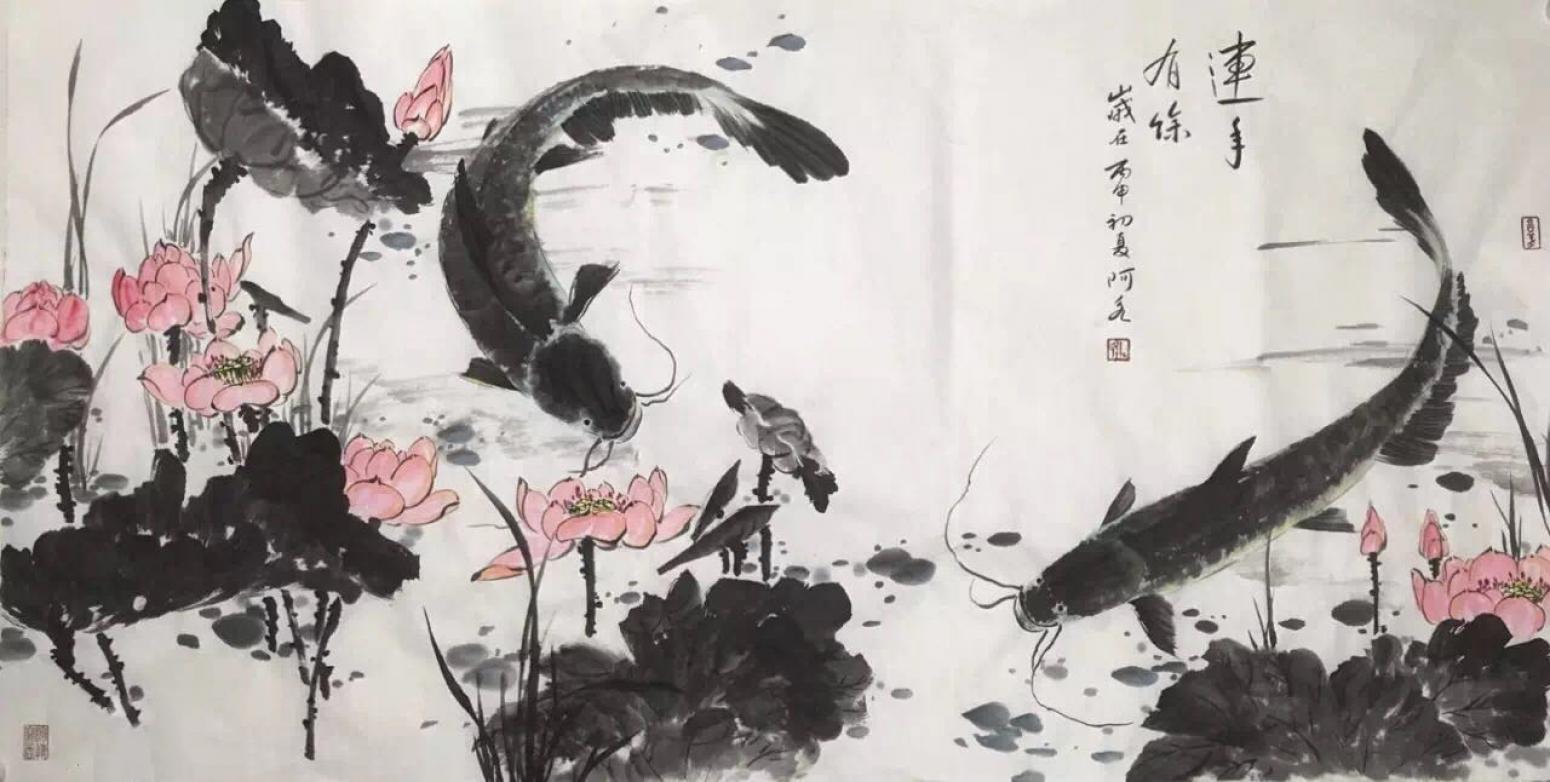 連年
有餘
歲在丙申初夏阿